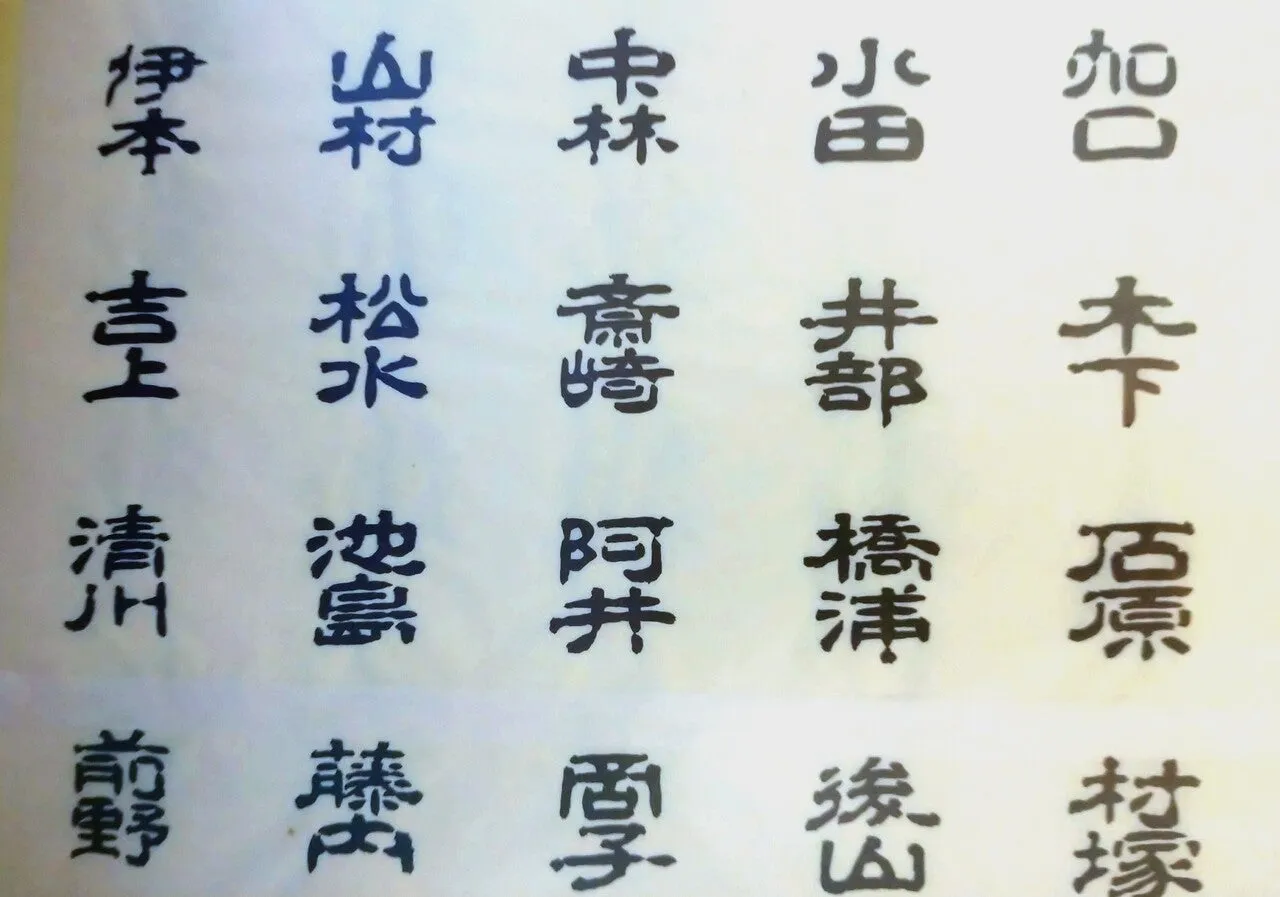 加口
水田
中林
山村
伊本
木下
井部
斎崎
松水
吉上
石原
橋浦
阿井
池島
清川
村塚
後山
岡子
藤内
前野